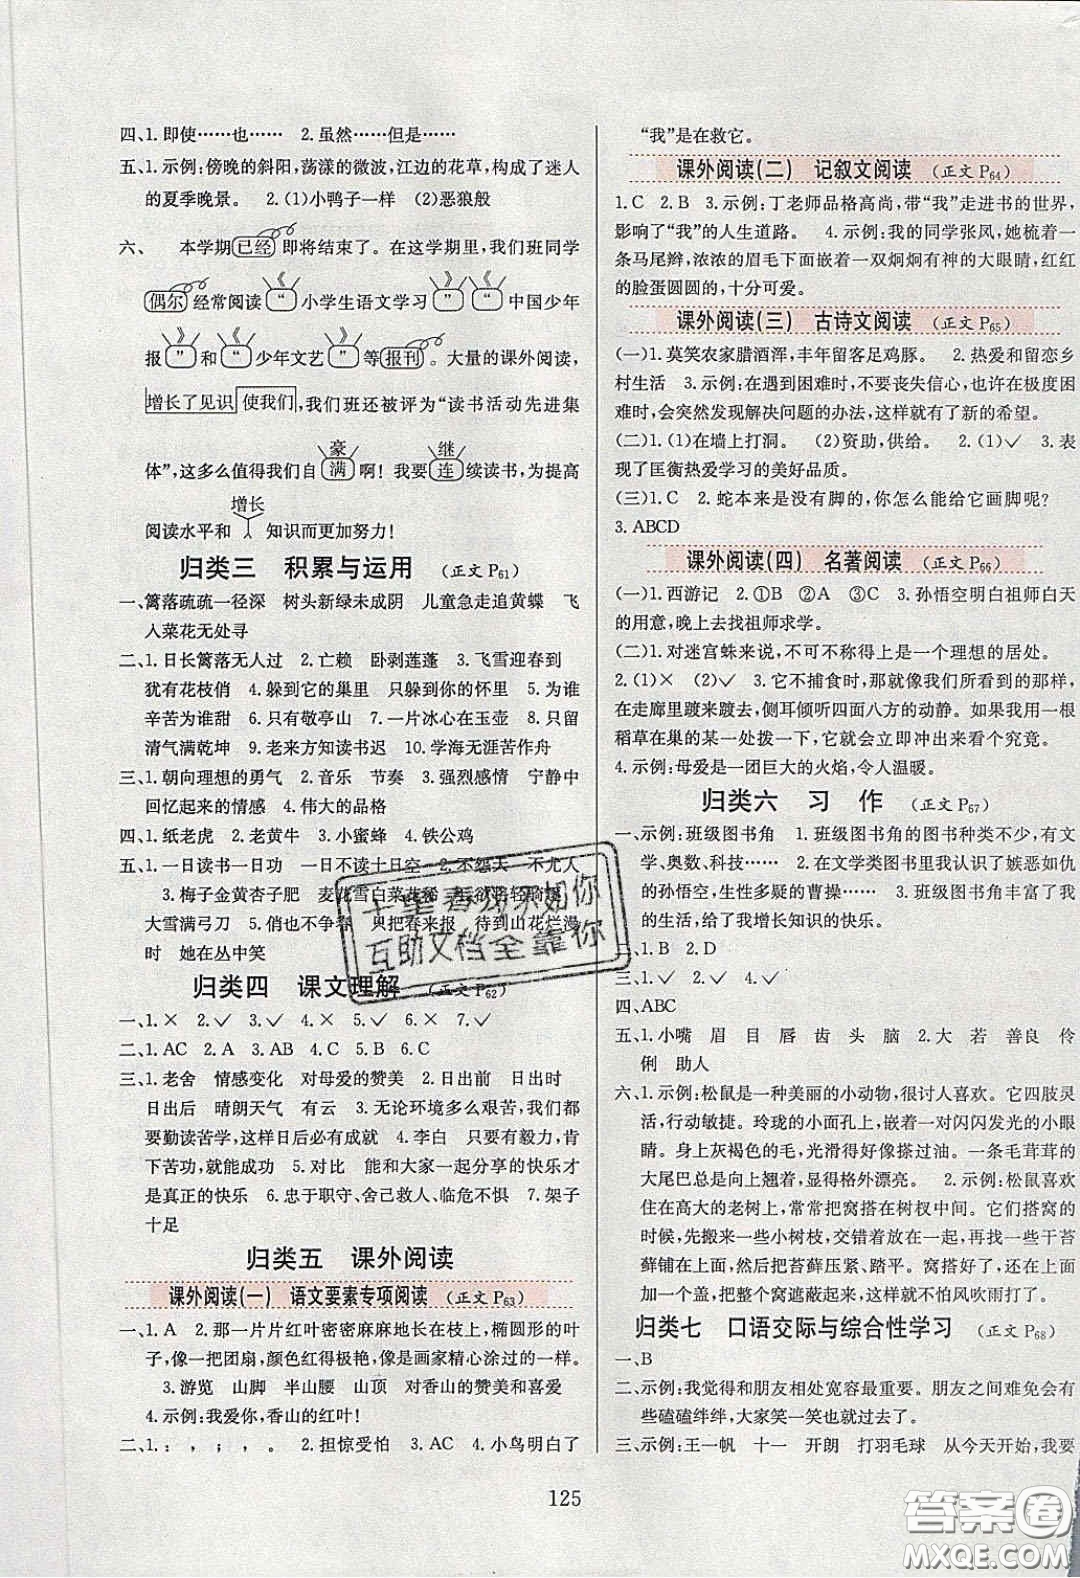 四、1. 即使……也…… 2. 虽然……但是……
五、1. 示例:傍晚的斜阳,荡漾的微波,江边的花草,构成了迷人
的夏季晚景。 2. (1)小鸭子一样 (2)恶狼般
六、 本学期已经即将结束了。在这学期里,我们班同学
偶尔经常阅读《“小学生语文学习”》《“中国少年
报”》和《“少年文艺”》等报刊。大量的课外阅读,
增长了见识使我们,我们班还被评为“读书活动先进集
豪 继
体”,这多么值得我们自满啊!我要连续读书,为提高
增长
阅读水平和 知识而更加努力!
归类三 积累与运用 (正文 P61)
一、篱落疏疏一径深 树头新绿未成阴 儿童急走追黄蝶 飞
入菜花无处寻
二、1. 日长篱落无人过 2. 亡赖 卧剥莲蓬 3. 飞雪迎春到
犹有花枝俏 4. 躲到它的巢里 只躲到你的怀里 5. 为谁
辛苦为谁甜 6. 只有敬亭山 7. 一片冰心在玉壶 8. 只留
清气满乾坤 9. 老来方知读书迟 10. 学海无涯苦作舟
三、1. 朝向理想的勇气 2. 音乐 节奏 3. 强烈感情 宁静中
回忆起来的情感 4. 伟大的品格
四、1. 纸老虎 2. 老黄牛 3. 小蜜蜂 4. 铁公鸡
五、1. 一日读书一日功 一日不读十日空 2. 不怨天 不尤人
3. 梅子金黄杏子肥 麦花雪白菜花稀 4. 欲将轻骑逐
大雪满弓刀 5. 俏也不争春 只把春来报 待到山花烂漫
时 她在丛中笑
归类四 课文理解 (正文 P62)
一、1. × 2. ✓ 3. ✓ 4. × 5. ✓ 6. × 7. ✓
二、1. AC 2. A 3. AB 4. C 5. B 6. C
三、1. 老舍 情感变化 对母爱的赞美 2. 日出前 日出时
日出后 晴朗天气 有云 3. 无论环境多么艰苦,我们都
要勤读苦学,这样日后必有成就 4. 李白 只要有毅力,肯
下苦功,就能成功 5. 对比 能和大家一起分享的快乐才
是真正的快乐 6. 忠于职守、舍己救人、临危不惧 7. 架子
十足
归类五 课外阅读
课外阅读(一) 语文要素专项阅读 (正文 P63)
一、1. A 2. 那一片片红叶密密麻麻地长在枝上,椭圆形的叶
子,像一把团扇,颜色红得极艳,像是画家精心涂过的一样。
3. 游览 山脚 半山腰 山顶 对香山的赞美和喜爱
4. 示例:我爱你,香山的红叶!
二、1. : , ; , 。 2. 担惊受怕 3. AC 4. 小鸟明白了
“我”是在救它。
课外阅读(二) 记叙文阅读 (正文 P64)
1. C 2. B 3. 示例:丁老师品格高尚,带“我”走进书的世界,
影响了“我”的人生道路。 4. 示例:我的同学张凤,她梳着一
条马尾辫,浓浓的眉毛下面嵌着一双炯炯有神的大眼睛,红红
的脸蛋圆圆的,十分可爱。
课外阅读(三) 古诗文阅读 (正文 P65)
(一)1. 莫笑农家腊酒浑,丰年留客足鸡豚。 2. 热爱和留恋乡
村生活 3. 示例:在遇到困难时,不要丧失信心,也许在极度困
难时,会突然发现解决问题的办法,这样就有了新的希望。
(二)1. (1)在墙上打洞。 (2)资助,供给。 2. (1)✓ 3. 表
现了匡衡热爱学习的美好品质。
(三)1. C 2. 蛇本来是没有脚的,你怎么能给它画脚呢?
3. ABCD
课外阅读(四) 名著阅读 (正文 P66)
(一)1. 西游记 2. ①B ②A ③C 3. 孙悟空明白祖师白天
的用意,晚上去找祖师求学。
(二)1. 对迷宫蛛来说,不可不称得上是一个理想的居处。
2. (1)× (2)✓ 3. 它不捕食时,那就像我们所看到的那样,
在走廊里踱来踱去,侧耳倾听四面八方的动静。如果我用一根
稻草在巢的某一处拨一下,它就会立即冲出来看个究竟。
4. 示例:母爱是一团巨大的火焰,令人温暖。
归类六 习 作 (正文 P67)
一、示例:班级图书角 1. 班级图书角的图书种类不少,有文
学、奥数、科技…… 2. 在文学类图书里我认识了嫉恶如仇
的孙悟空,生性多疑的曹操…… 3. 班级图书角丰富了我
的生活,给了我增长知识的快乐。
二、1. B 2. D
三、1. ✓ 2. ✓
四、ABC
五、1. 小嘴 眉 目 唇 齿 头 脑 2. 大 若 善良 伶
俐 助人
六、1. 示例:松鼠是一种美丽的小动物,很讨人喜欢。它四肢灵
活,行动敏捷。玲珑的小面孔上,嵌着一对闪闪发光的小眼
睛。身上灰褐色的毛,光滑得好像搽过油。一条毛茸茸的
大尾巴总是向上翘着,显得格外漂亮。 2. 示例:松鼠喜欢
住在高大的老树上,常常把窝搭在树杈中间。它们搭窝
的时候,先搬来一些小树枝,交错着放在一起,再把一些干苔
藓铺在上面,把苔藓压紧、踏平。窝搭好后,还要在上面
搭上一个盖,把整个窝遮蔽起来,这样就不怕风吹雨打了。
归类七 口语交际与综合性学习 (正文 P68)
一、B
二、示例:我觉得和朋友相处宽容最重要。朋友之间难免会有
些磕磕绊绊,大家笑一笑也就过去了。
三、示例:王一帆 十一 开朗 打羽毛球 从今天开始,我要
125
互助文档全靠你
答案圈
MXQE.COM